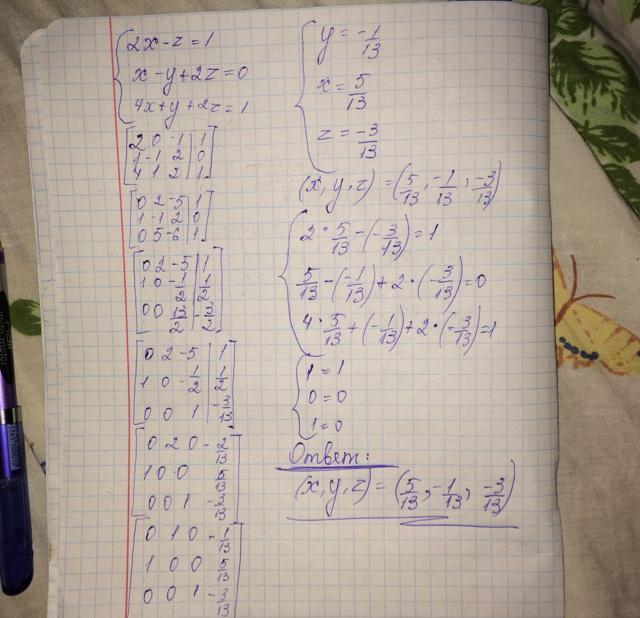 2x - z = 1
x - y + 2z = 0
4x + y + 2z = 1
2 0 -1 | 1
1 -1 2 | 0
4 1 2 | 1
0 2 -5 | 1
1 -1 2 | 0
0 5 -6 | 1
0 2 -5 | 1
1 0 -1/2 | 1/2
0 0 13/2 | -3/2
0 2 -5 | 1
1 0 -1/2 | 1/2
0 0 1 | -3/13
0 2 0 -2/13
1 0 0 5/13
0 0 1 -3/13
0 1 0 -1/13
1 0 0 5/13
0 0 1 -3/13
y = -1/13
x = 5/13
z = -3/13
(x, y, z) = (5/13, -1/13, -3/13)
2 · 5/13 - (-3/13) = 1
5/13 - (-1/13) + 2 · (-3/13) = 0
4 · 5/13 + (-1/13) + 2 · (-3/13) = 1
1 = 1
0 = 0
1 = 0
Ответ:
(x, y, z) = (5/13, -1/13, -3/13)